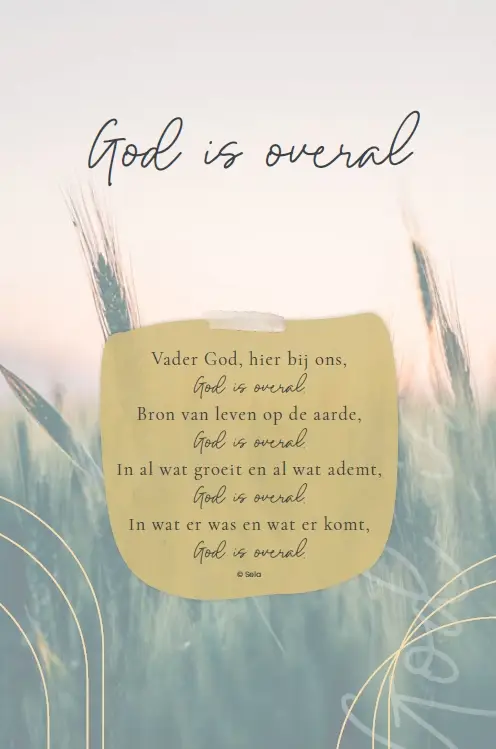 God is overal
Vader God, hier bij ons,
God is overal.
Bron van leven op de aarde,
God is overal.
In al wat groeit en al wat ademt,
God is overal.
In wat er was en wat er komt,
God is overal.
© Sela